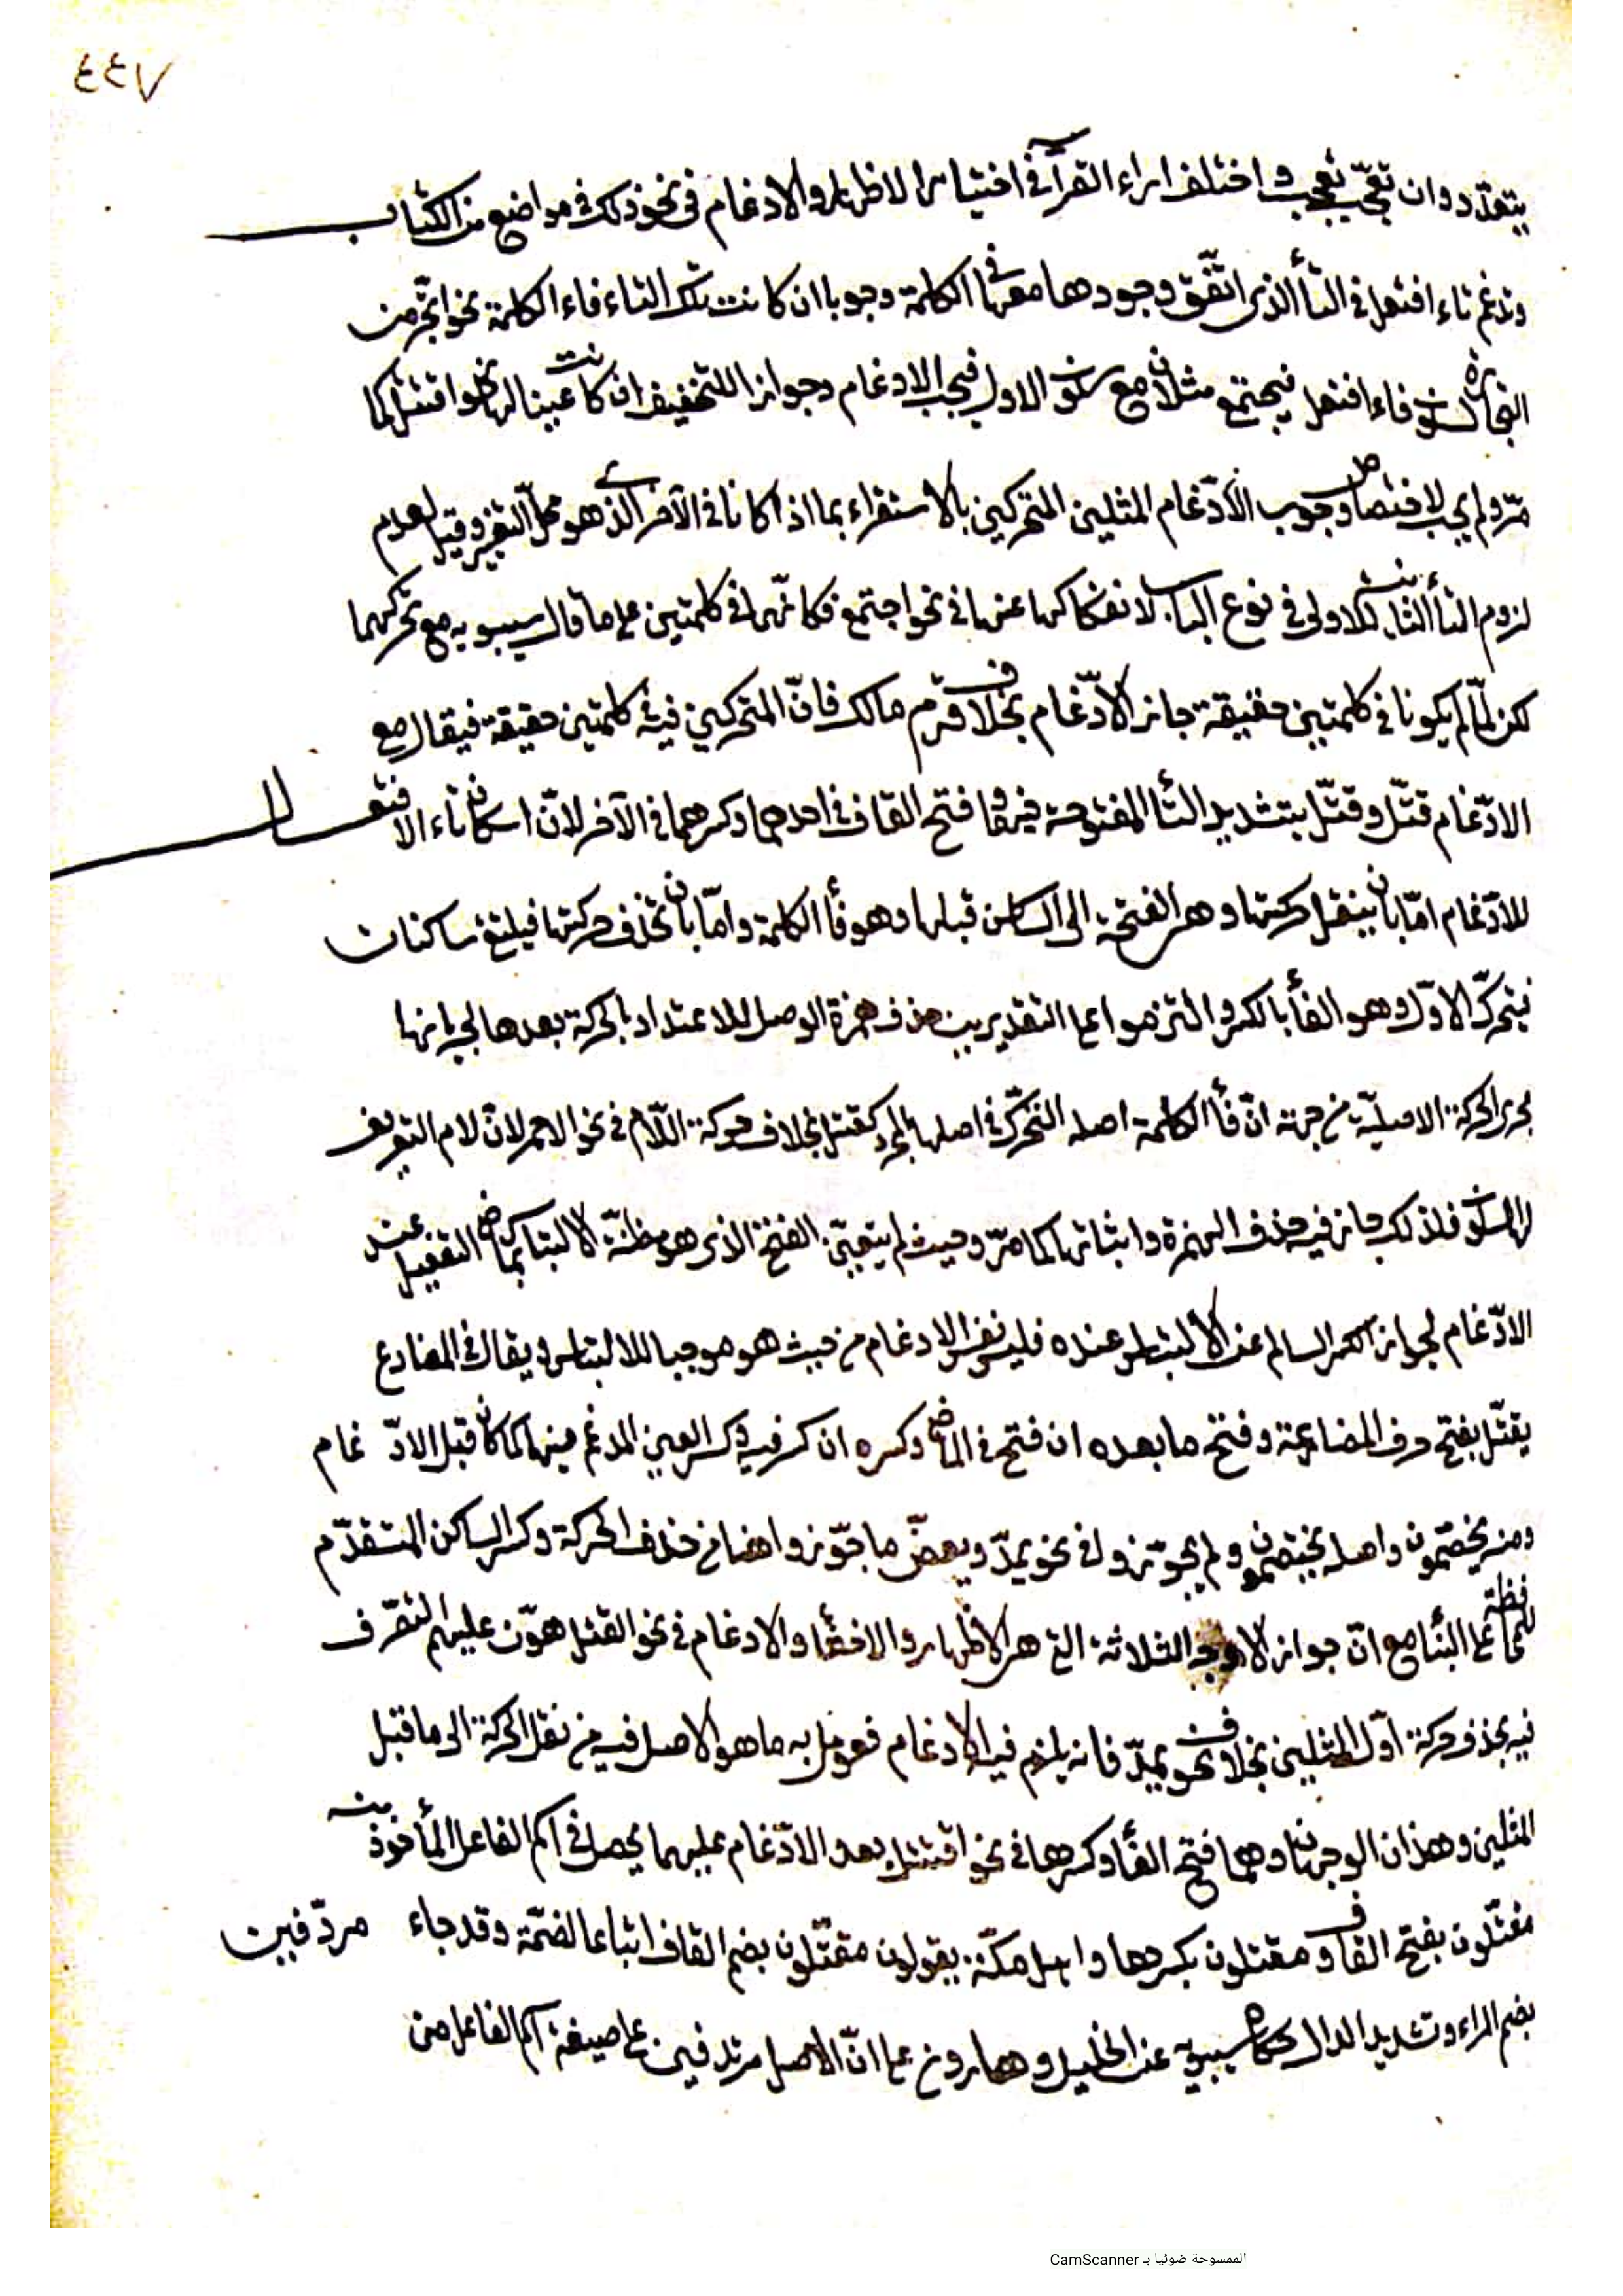 ٤٤٧
يتعدّد وان تعجّب يعجب واختلف اراء القرّآء في اختيار الاظهار والادغام في نحو ذلك في مواضع من الكتاب
وتدغم تاء افتعل في التأ الذى اتّفق وجودها معها في الكلمة وجوبا ان كانت تلك التاء فاء الكلمة نحو اتّجر من
التجارة لسكون فاء افتعل فيجتمع مثلان مع سكون الاول فيجب الادغام وجوازا للتخفيف ان كانت عينا لها نحو اقتتل كما
مرّ ولم يجب لاختصاص وجوب الادّغام المثلين المتحركين بالاستقراء بما اذا كانا في الآخر الذى هو محلّ التغير وقيل لعدم
لزوم التأ الثانية للاولى في نوع الباب لانفكاكها عنها في نحو اجتمع فكانّهما في كلمتين على ما قال سيبويه مع تحركهما
لكن لمّا لم يكونا في كلمتين حقيقة جاز الادّغام بخلاف قرم مالك فانّ المتحركين فيه في كلمتين حقيقة فيقال مع
الادّغام قتّل وقتّل بتشديد التأ المفتوحة فيهما وفتح القاف في احدهما وكسرهما في الآخر لانّ اسكان تاء الافتعال
للادّغام امّا بان ينقل حركتها وهى الفتحة الى الساكن قبلها وهو فأ الكلمة وامّا بان تحذف حركتها فيلتقى ساكنان
فيتحرّك الاوّل وهو الفأ بالكسر والتزموا على التقديرين حذف همزة الوصل للاعتداد بالحركة بعدها لجريانها
مجرى الحركة الاصليّة من جهة انّ فأ الكلمة اصله التحرّك في اصلها المجرد كقتل بخلاف حركة اللّام في نحو الاحمر لانّ لام التعريف
لها السكون فلذلك جاز فيه حذف الهمزة واثباتها كما مرّ وحيث لم يتعيّن الفتح الذى هو مظنّة الالتباس بماضى التفعيل عند
الادّغام لجواز الكسر السالم عن الالتباس عنده فليس نفس الادغام من حيث هو موجبا للالتباس ويقال في المضارع
يقتّل بفتح حرف المضارعة وفتح ما بعده ان فتح في الماضى وكسره ان كسر فيه وكسر العين المدغم فيها كما كان قبل الادّغام
ومنه يخصّمون واصله يختصمون ولم يجوّزوا في نحو يمدّ ويعضّ ما جوّزوا هنا من حذف الحركة وكسر الساكن المتقدّم
للمحافظة على البنأ مع انّ جواز الاوجه الثلاثة التى هى الاظهار والاخفأ والادغام في نحو اقتتل هوّن عليهم التصّرف
فيه بحذف حركة اوّل المثلين بخلاف نحو يمدّ فانه يلزم فيه الادغام فعومل به ما هو الاصل فيه من نقل الحركة الى ما قبل
المثلين وهذان الوجهان وهما فتح الفأ وكسرها في نحو اقتتل بعد الادّغام عليهما يحصل في اسم الفاعل المأخوذ منه
مقتّلون بفتح القاف ومقتلون بكسرها واهل مكّة يقولون مقتّلون بضم القاف اتباعا لضمّة وقد جاء مردّفين
بضم الراء وتشديد الدال حكاه سيبويه عن الخليل وهارون على انّ الاصل مرتدفين على صيغة اسم الفاعل من
الممسوحة ضوئيا بـ CamScanner